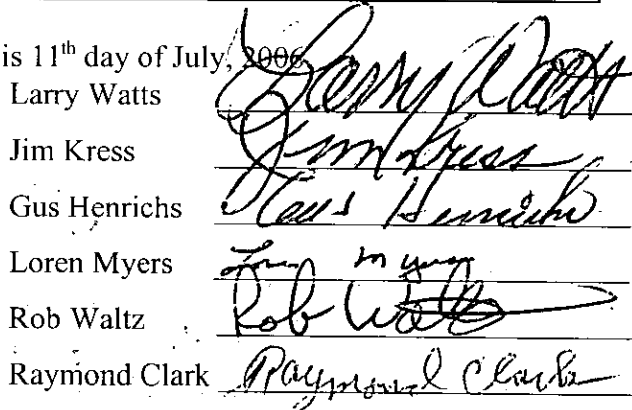 is 11th day of July, 2006
Larry Watts Larry Watts
Jim Kress Jim Kress
Gus Henrichs Gus Henrichs
Loren Myers Loren Myers
Rob Waltz Rob Waltz
Raymond Clark Raymond Clark